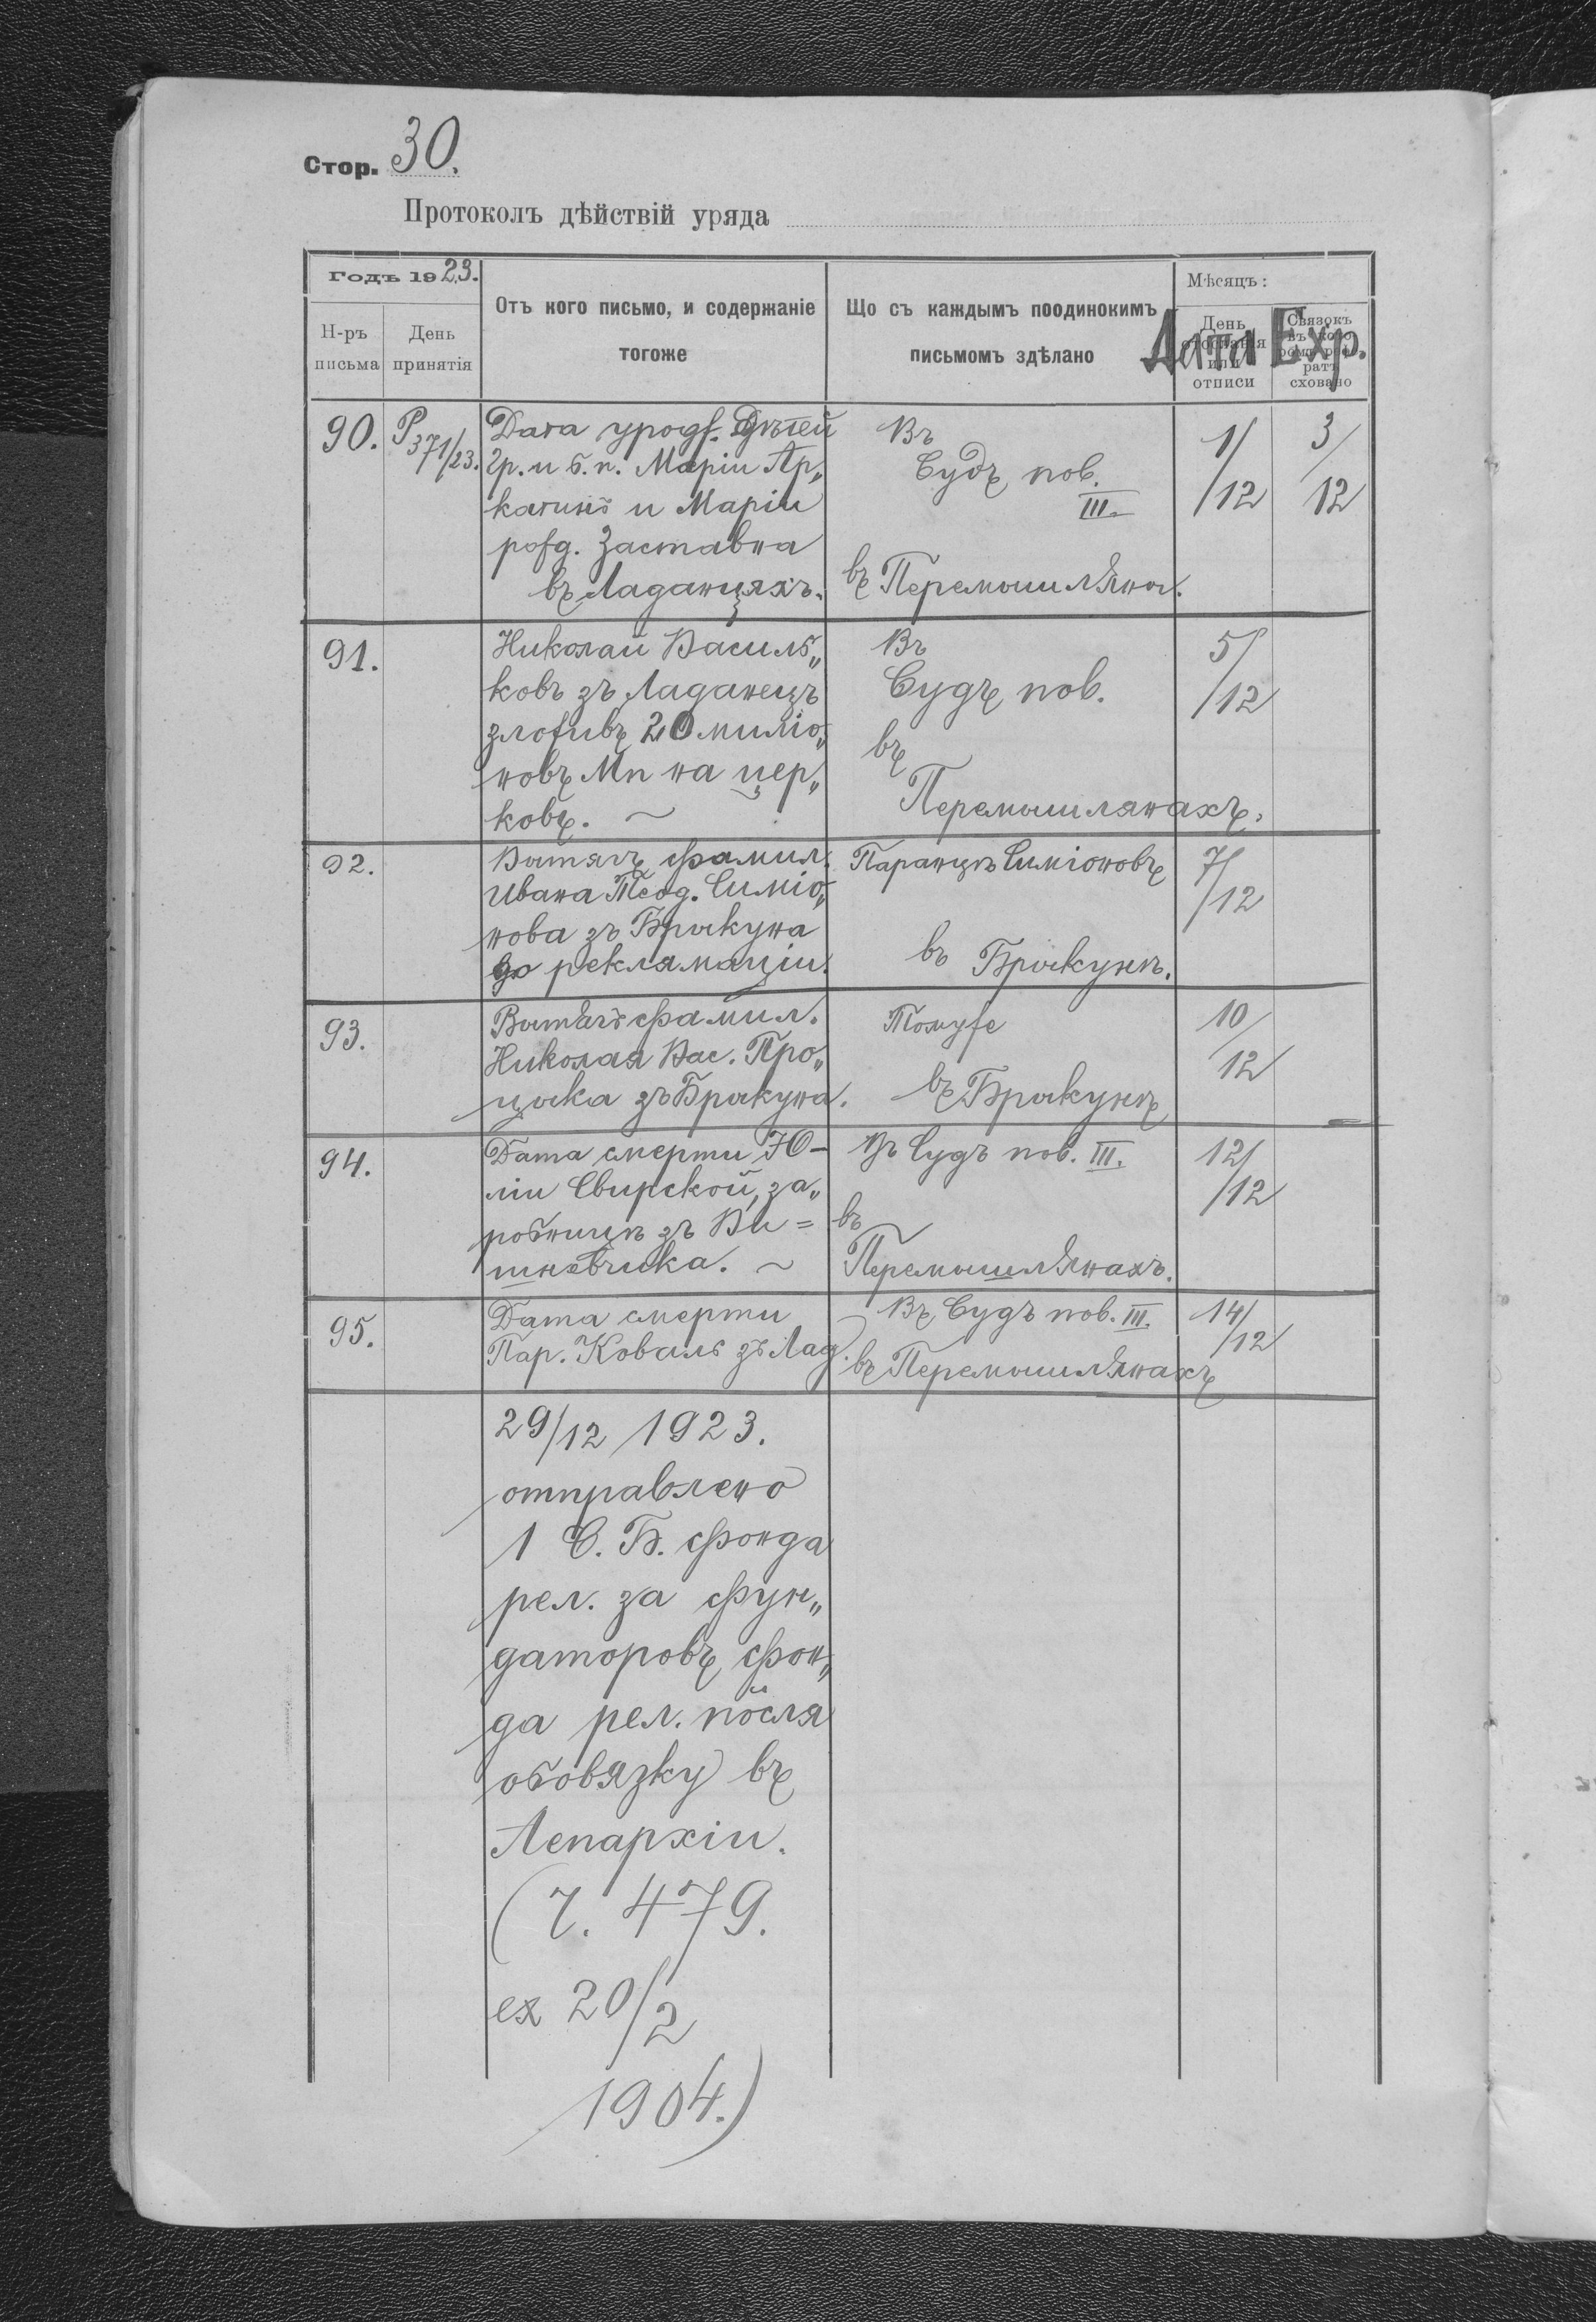 Стор. 30.
Протоколъ дѣйствій уряда
Годъ 1923.
Н-ръ письма
День принятія
Отъ кого письмо, и содержаніе
тогоже
Що съ каждымъ поодинокимъ
письмомъ здѣлано
Мѣсяцъ:
День
или
отписи
Связокъ
ратъ
сховано
Дата Exp.
90. P 371/23.
Дата уродж. дѣтей
гр. и б. п. Маріи Ар„
катинъ и Маріи
рожд. Заставна
въ Ладанцяхъ.
Въ
Судъ пов.
III.
въ Перемышляна.
1/12
3/12
91.
Николай Василь„
ковъ зъ Ладанецъ
зложивъ 20 миліо„
новъ Мп на цер„
ковъ. ~
Въ
Судъ пов.
въ
Перемышлянахъ.
5/12
92.
Вытягъ фамил.
Ивана Теод. Симіо„
нова зъ Брыкуна
до реклямаціи.
Параицѣ Симіоновъ
въ Брыкунѣ.
7/12
93.
Вытягъ фамил.
Николая Вас. Про„
цыка зъ Брыкуна.
Томуже
въ Брыкунѣ
10/12
94.
Дата смерти Ю-
ліи Свирской, за„
робницѣ зъ Ви=
шневчика. ~
Въ Судъ пов. III.
въ
Перемышлянахъ.
12/12
95.
Дата смерти
Пар. Коваль зъ Лад.
Въ Судъ пов. III.
въ Перемышлянахъ
14/12
29/12 1923.
отправлено
1 С. Б. фонда
рел. за фун„
даторовъ фон„
да рел. після
обовязку въ
Аепархіи.
(ч. 479.
ex 20/2
1904.)